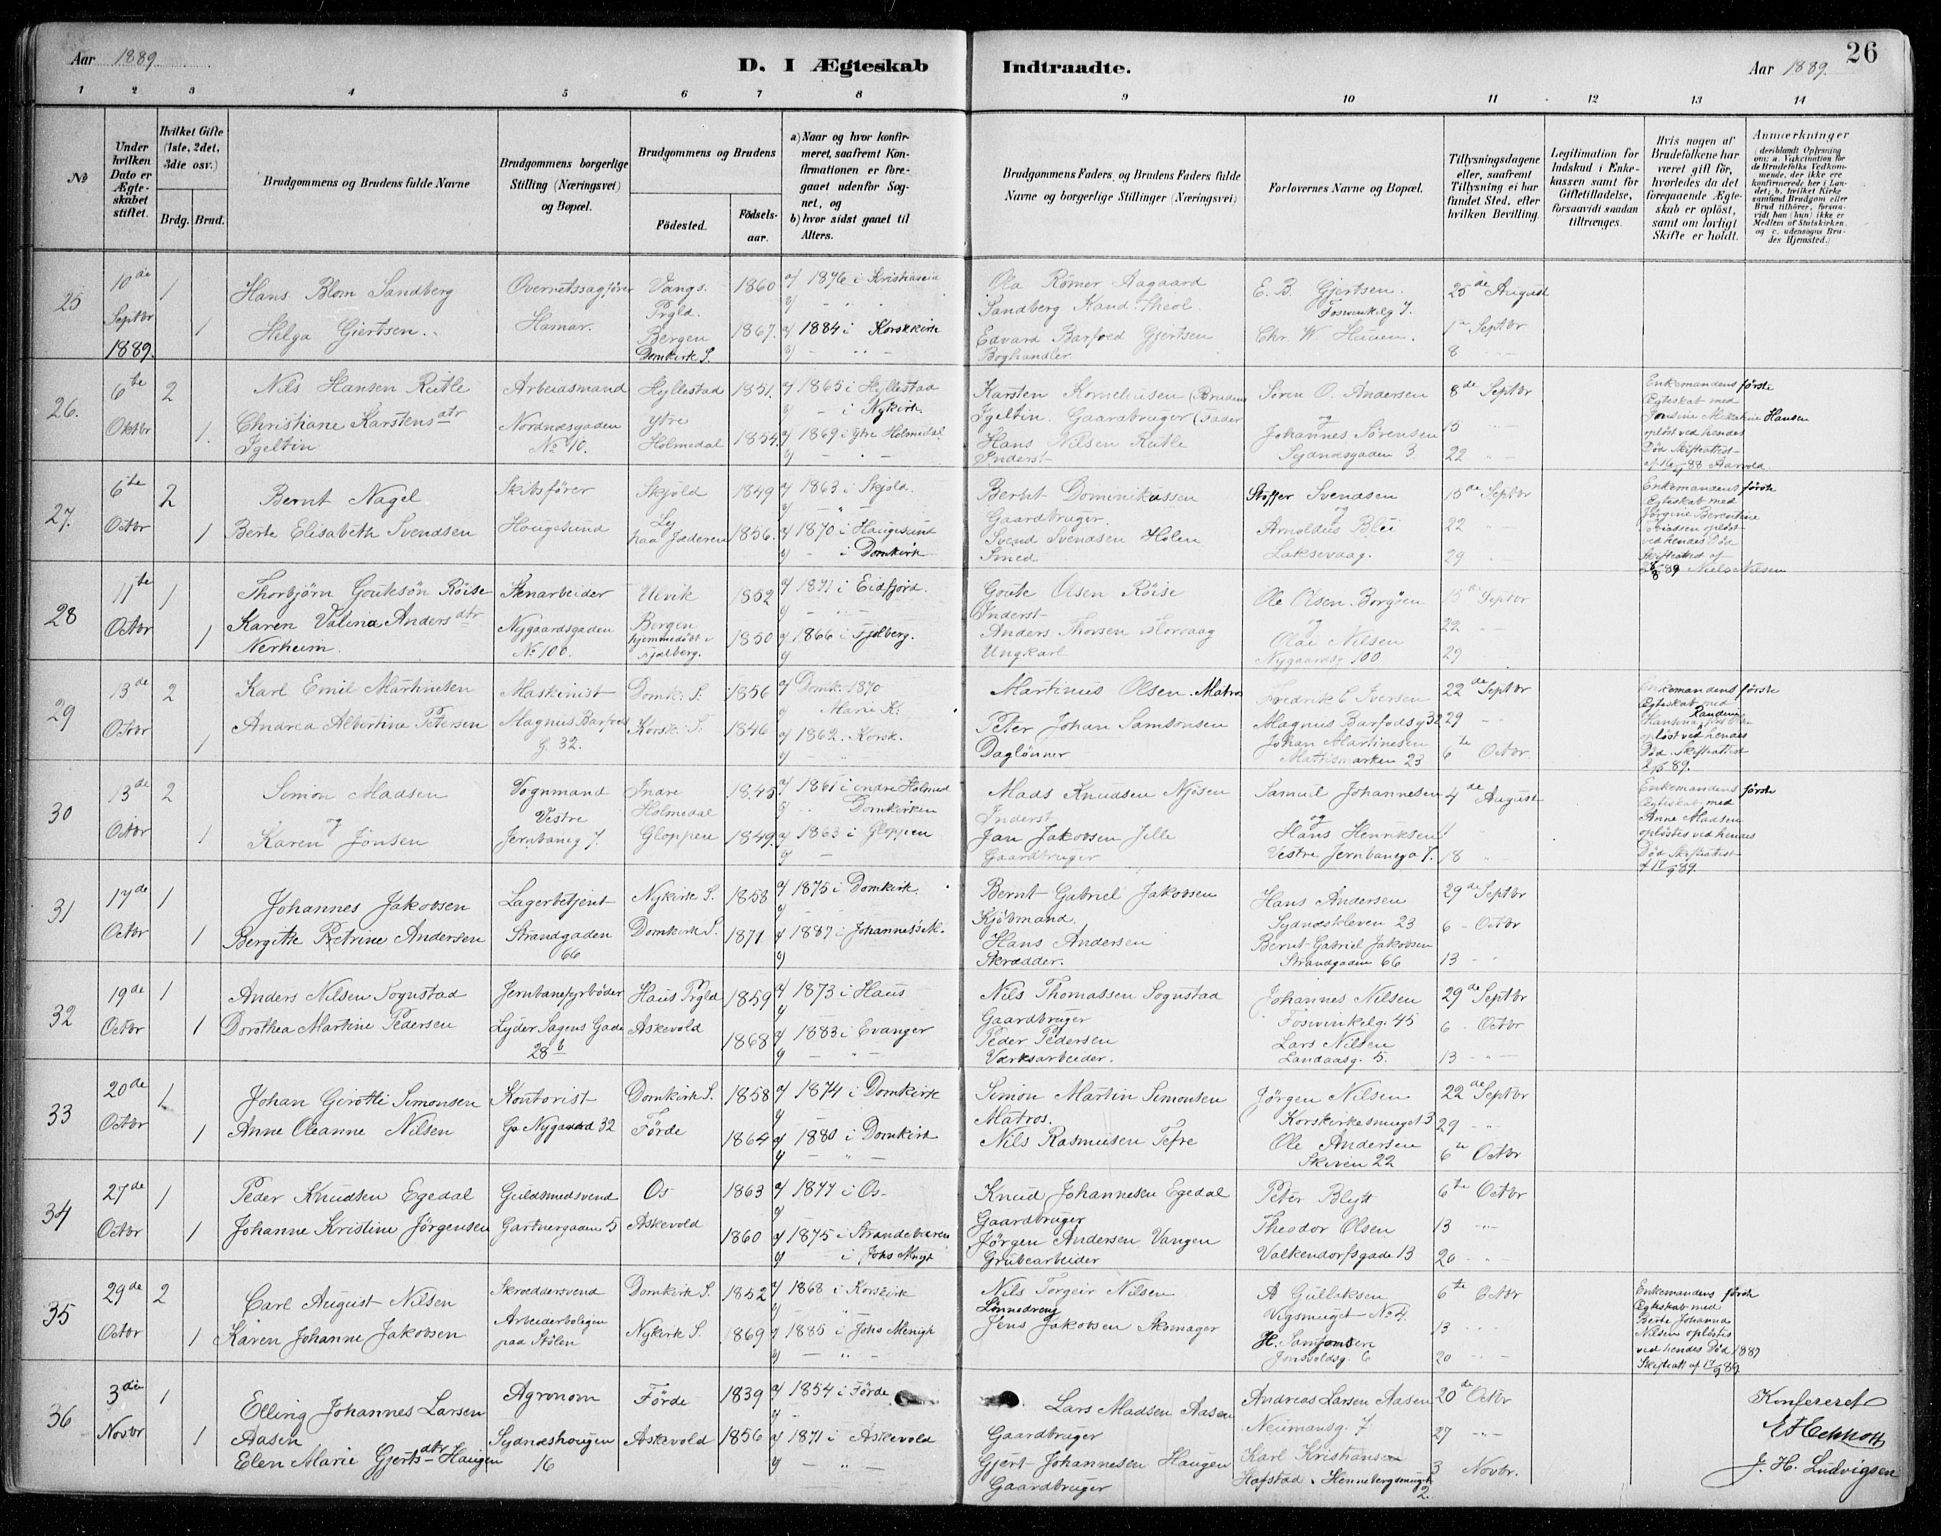 Aar 1889.
D. I Ægteskab
Indtraadte.
Aar 1889.
26
1 2 3 4 5 6 7 8 9 10 11 12 13 14
No
Under hvilken Dato er Ægteskabet stiftet.
Hvilket Gifte (1ste, 2det, 3die osv.)
Brdg. Brud.
Brudgommens og Brudens fulde Navne
Brudgommens borgerlige Stilling (Næringsvei) og Bopæl.
Brudgommens og Brudens
Födested.
Födselsaar.
a) Naar og hvor konfirmeret, saafremt Konfirmationen er foregaaet udenfor Sognet, og
b) hvor sidst gaaet til Alters.
Brudgommens Faders, og Brudens Faders fulde Navne og borgerlige Stillinger (Næringsvei)
Forlovernes Navne og Bopæl.
Tillysningsdagene eller, saafremt Tillysning ei har fundet Sted, efter hvilken Bevilling.
Legitimation for Indskud i Enkekassen samt for Giftetilladelse, forsaavidt saadan tiltrænges.
Hvis nogen af Brudefolkene har været gift för, hvorledes da det foregaaende Ægteskab er oplöst, samt om lovligt Skifte er holdt.
Anmerkninger (deriblandt Oplysning om: a. Vakcination for de Brudefolks Vedkommende, der ikke ere konfirmerede her i Landet, b. hvilket Kirkesamfund Brudgom eller Brud tilhörer, forsaavidt han (hun) ikke er Medlem af Statskirken, og c. udensogns Brudes Hjemsted.)
25
10de Septbr 1889.
1
1
Hans Blom Sandberg
Helga Giertsen.
Overretssagfører
Hamar.
Vangs. Prgld.
Bergen Domkirk S.
1860
1867.
a/ 1876 i Kristiania
a/ 1884 i Korskirk
Ola Römer Aagaard
Sandberg Kand. Theol.
Edvard Barfoed Gjertsen
Boghandler
E. B. Gjertsen.
Fosvinkelg 7.
Chr. W.
25de August
1ste Septbr
8 " "
26.
6te Oktbr
2
1.
Nils Hansen Rutle
Christiane Karstensdtr
Igeltin
Arbeidsmand
Nordnæsgaden
No 90.
Hyllestad
ytre Holmedal
1851.
1854.
a/ 1865 i Hyllestad
b/ - i Nykirk.
a/ 1869 i ytre Holmedal
Karsten Korneliusen (Brudens
Igeltin. Gaardbruger (Fader
Hans Nilsen Rutle
Inderst
Sören O. Andersen
og
Johannes Sörensen
Sydnæsgaden 3
8de Septbr
15 " "
22 " "
Enkemandens første
Ægteskab med
Hansen
opløst ved hendes
Død Skifteattest
27.
6te Octbr
2
1
Bernt Nagel
Berte Elisabeth Svendsen
Skibsfører
Haugesund
Skjold
paa Jæderen
1849
1856.
a/ 1863 i Skjold.
a/ 1870 i Haugesund
b/ - i Domkirk
Bernt Dominikussen
Gaardbruger.
Svend Svendsen Holen
Smed
Stoffer Svendsen
og
Arnoldus Blei
Laksevaag.
15de Septbr
22 " "
29 " "
Enkemandens første
Ægteskab med
Jørgine Berentine
opløst
ved hendes Död
Skifteattest af
Niels Nilsen
28
11te Octbr
1
1
Thorbjörn Gouteson Röise
Karen Valina Andersdtr
Nerheim.
Stenarbeider
Nygaardsgaden
No 100.
Ulvik
Bergen
hjemmedöbt i
Fjelberg.
1852
1850
a/ 1871 i Eidfjord.
a/ 1866 i Fjelberg.
Goute Olsen Röise
Inderst
Anders Thorsen
Ungkarl
Ole Olsen Borgsen
og
Olai Nilsen
Nygaardsg 100
15de Septbr
22 " "
29 "
29
13de Octbr
2
1
Karl Emil Martinesen
Andrea Albertine Petersen
Maskinist
Magnus Barfods
G. 32.
Domk. S.
Korsk. S.
1856
1846
a/ Domk. 1870
b/ Marie K.
a/ 1862. Korsk.
Martinus Olsen. Matros
Peter Johan Samsonsen
Daglønner
Fredrik C Iversen
Magnus Barfodsg 32
Johan Martinesen
Mathismarken 23
22de Septbr
29 " "
6te Octbr
Enkemandens første
Ægteskab med
opløst ved hendes
Død. Skifteattest
30
13de Octbr
2
1
Simon Madsen
og
Karen Jonsen
Vognmand
Vestre
Jernbaneg 7.
Indre Holmedal
Gloppen
1845
1849.
a/ 1861 i indre Holmed
b/ " Domkirken
a/ 1863 i Gloppen
Mads Knudsen Njösen
Inderst
Jan Jakobsen Jelle
Gaardbruger
Samuel Johannesen
og
Hans Henriksen
Vestre Jernbaneg 7.
4de August
18 "
Enkemandens første
Ægteskab med
Anne Madsen
opløstes ved hendes
Død Skifteattest
31
17de Octbr
1
1
Johannes Jakobsen
Bergitte Petrine Andersen
Lagerbetjent
Strandgaden
66
Nykirk S.
Domkirk S.
1858
1871
a/ 1875 i Domkirk
a/ 1887 i Johannesk.
Bernt Gabriel Jakobsen
Kjöbmand.
Hans Andersen
Skrædder.
Hans Andersen
Sydneskleven 23
Bernt Gabriel Jakobsen
Strandgaden 66
29de Septbr
6 - Octbr
13 - "
32
19de Octbr
1
1
Anders Nilsen Sognstad
Dorothea Martine Pedersen
Jernbanefyrböder
Lyder Sagens Gade
28b
Haus Prgld
Askevold
1859
1868
a/ 1873 i Haus
a/ 1883 i Evanger
Nils Thomassen Sognstad
Gaardbruger
Peder Pedersen
Værksarbeider.
Johannes Nilsen
Fosvinkelg. 45
Lars Nilsen
Landaasg. 5.
29de Septbr
6 - Octbr
13 - "
33
20de Octbr
1
1
Johan Girotti Simonsen
Anne Oleanne Nilsen
Kontorist
Ga Nygaard 32
Domkirk S.
Förde
1858
1864
a/ 1874 i Domkirk
a/ 1880 i Domkirk
Simon Martin Simonsen
Matros.
Nils Rasmusen Tefre
Jörgen Nilsen
Korskirkesmuget 3
Ole Andersen
Skiven 22
22de Septbr
29 " "
6te Octbr
34
27de Octbr
1
1
Peder Knudsen Egedal
Johanne Kristine Jörgensen
Guldsmedsvend
Gartnergaden 5
Os
Askevold
1863
1860
a/ 1877 i Os
a/ 1875 i Strandebarm
b/ i Johs Menigh
Knud Johannesen Egedal
Gaardbruger
Jörgen Andersen Vangen
Grubearbeider
Peter Blytt
Theodor Olsen
Valkendorfsgade 13
6te Octbr
13 "
20 "
35
29de Octbr
2
1
Carl August Nilsen
Karen Johanne Jakobsen
Skræddersvend
Arbeiderboligen
paa Stölen
Domkirk S.
Nykirk S.
1852
1869
a/ 1868 i Korskirk
a/ 1885 i Johs Menigh
Nils Torgeir Nilsen
Lönnedreng
Jens Jakobsen Skomager
A Gullaksen
Vigsmuget No 4.
H. Samsonsen
Jonsvoldsg. 6
6te Octbr
13 "
20 "
Enkemandens første
Ægteskab med
Berte Johanna
Nilsen opløstes
ved hendes Död 1887
36
3die Novbr
1
1
Elling Johannes Larsen
Aasen
Elen Marie Gjertsdtr Haugen
Agronom
Sydneshougen
16
Förde
Askevold
1839
1856
a/ 1854 i Förde
a/ 1871 i Askevold
Lars Madsen Aasen
Gaardbruger
Gjert Johannesen Haugen
Gaardbruger
Andreas Larsen Aasen
Neumansg. 7
Karl Kristiansen
Hafstad Hennebergsmuget
2.
20de Octbr
27 "
3 Novbr.
Konfereret
J. H. Ludvigsen